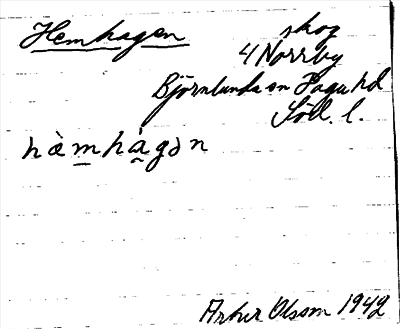 Hemhagen skog
4 Norrby
Björnlunda sn Daga hd
Söd. l.
hæ̀mhàgən
Arthur Olsson 1942